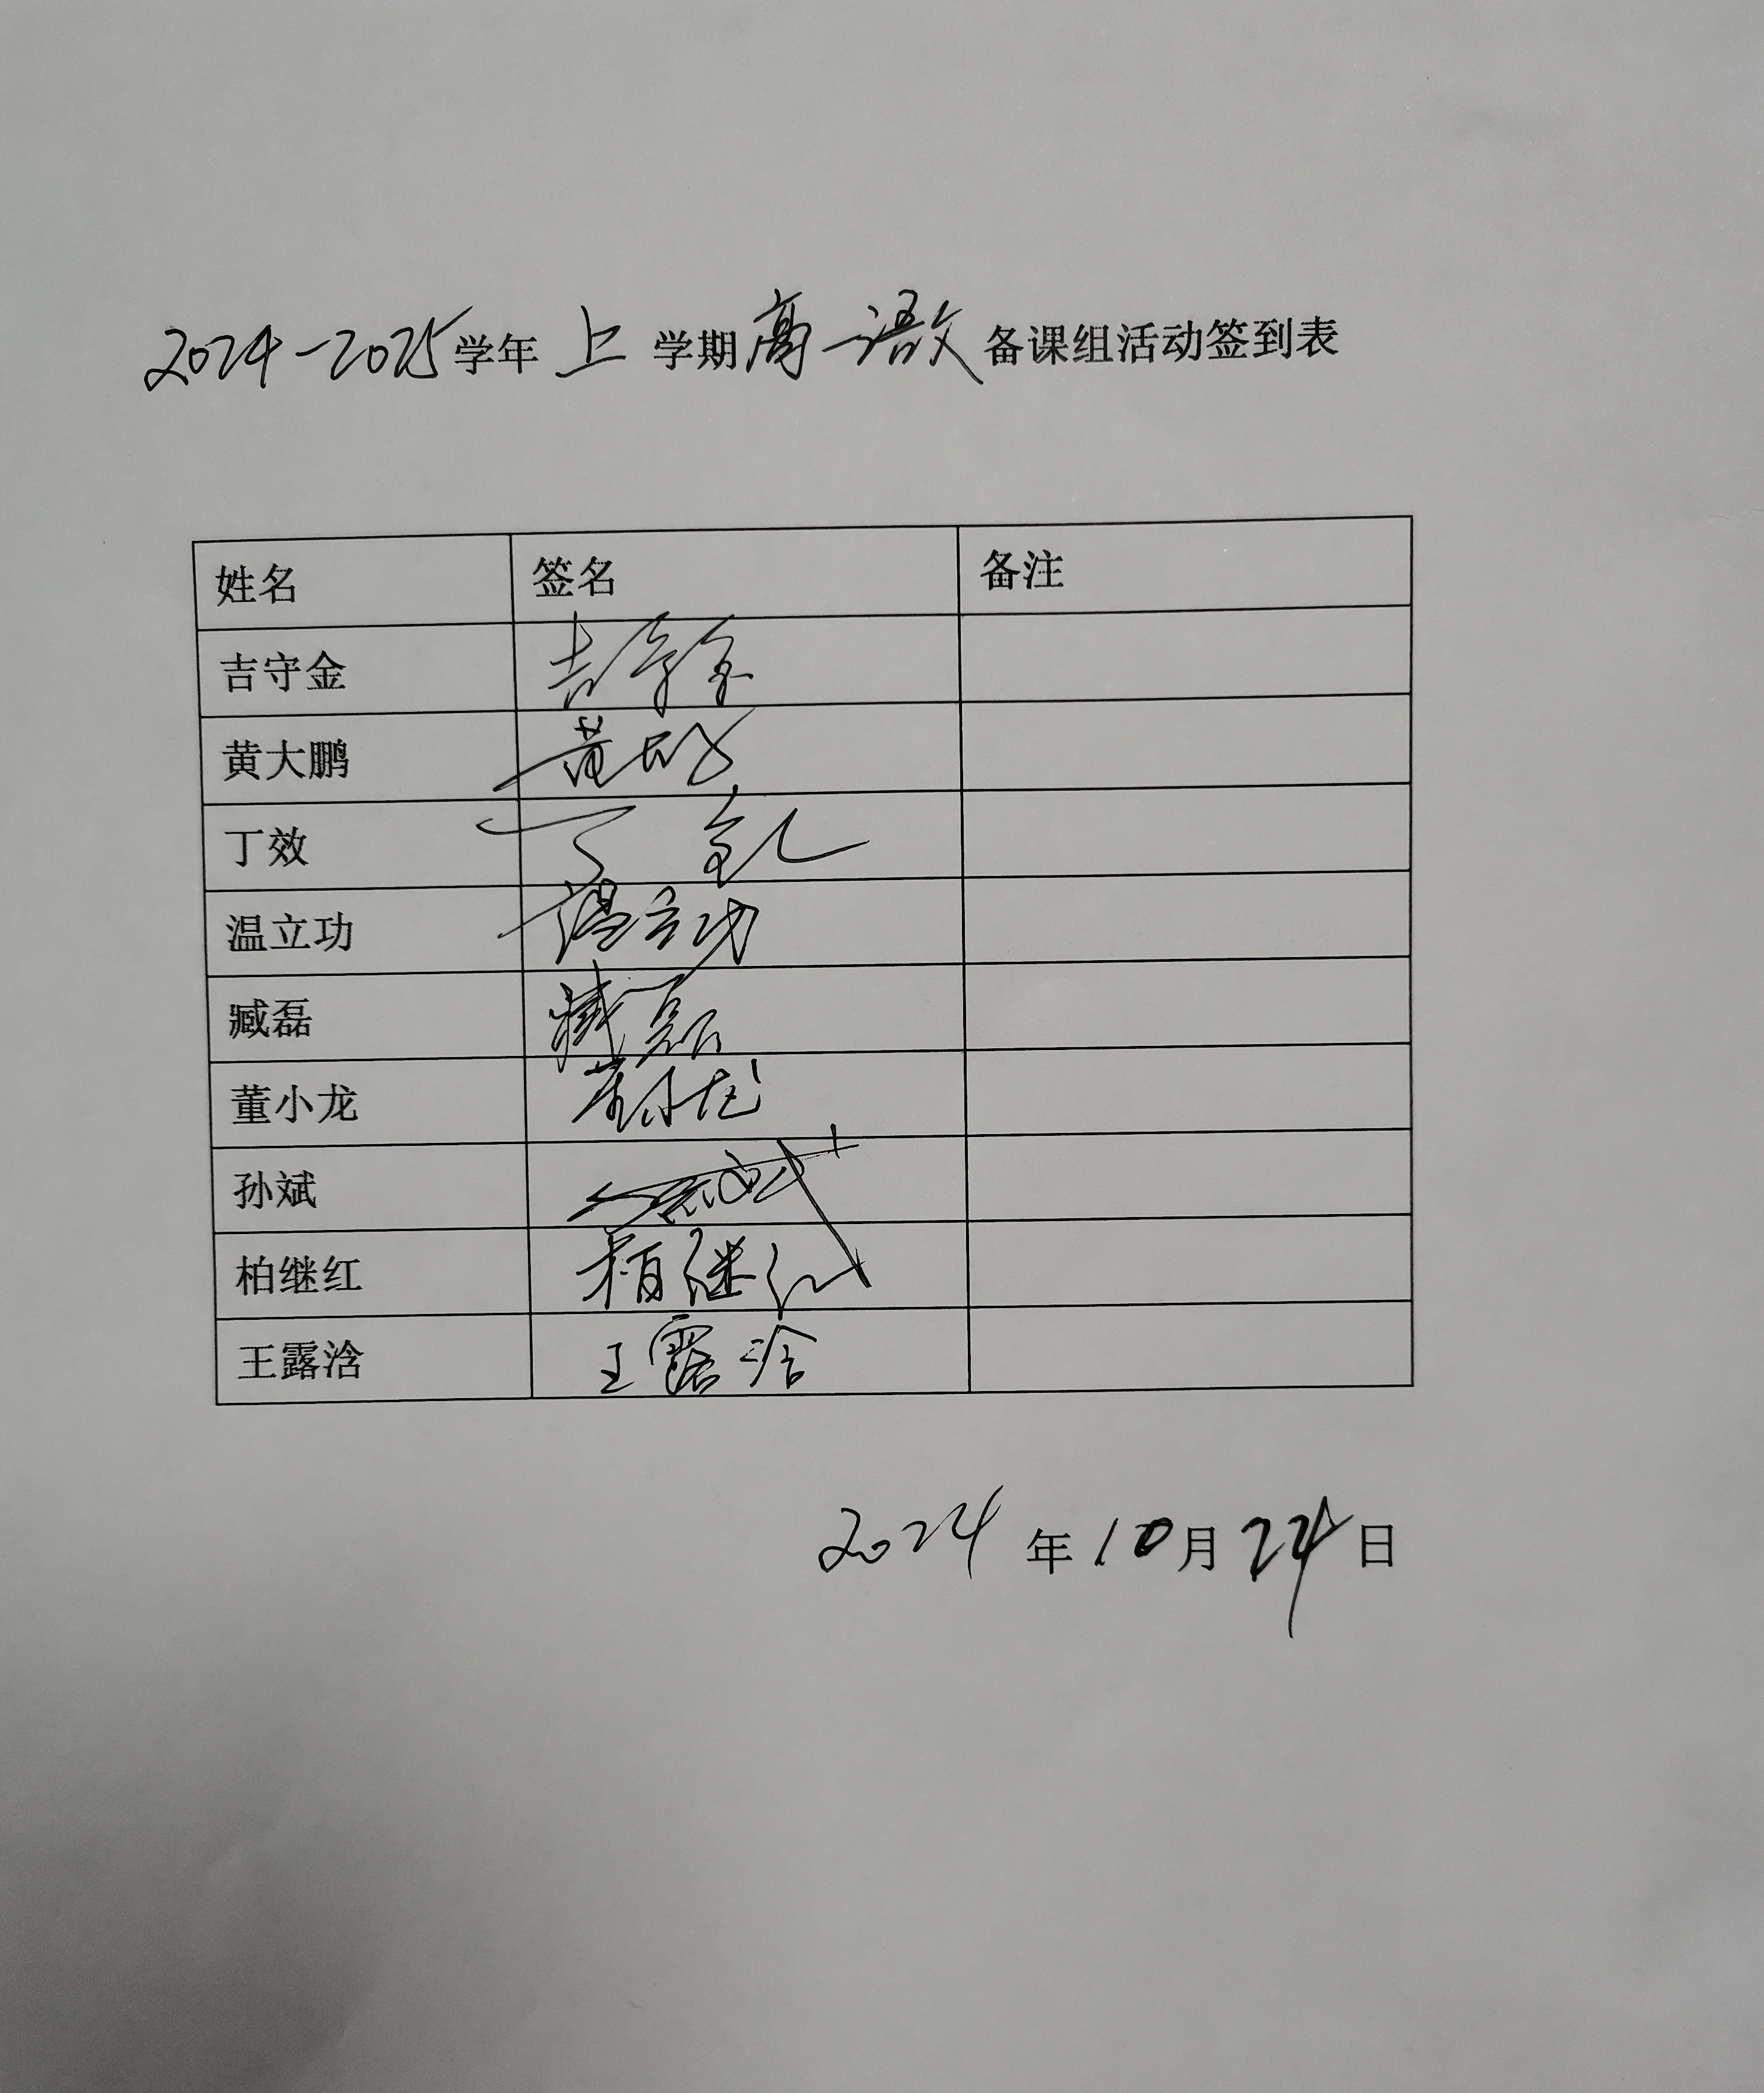 2024-2025学年 上 学期 高一语文 备课组活动签到表
姓名 签名 备注
吉守金 吉守金
黄大鹏 黄大鹏
丁效 丁效
温立功 温立功
臧磊 臧磊
董小龙 董小龙
孙斌 孙斌
柏继红 柏继红
王露浛 王露浛
2024 年 10 月 24 日